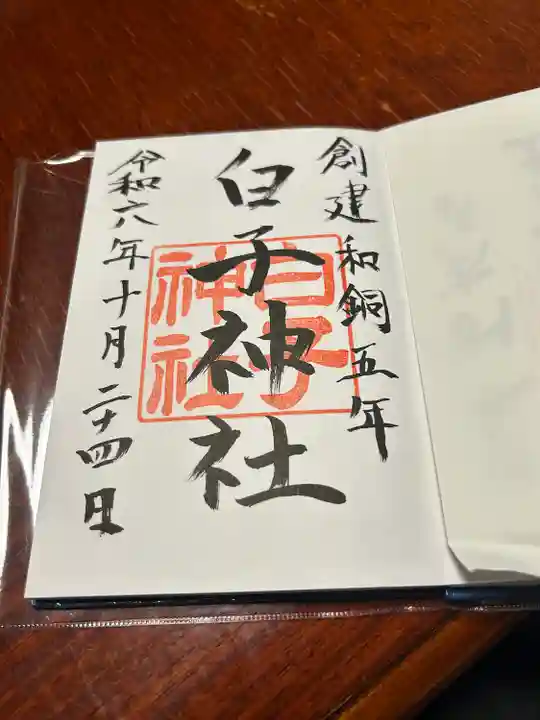 創建和銅五年
白子神社
白子
神社
令和六年十月二十四日